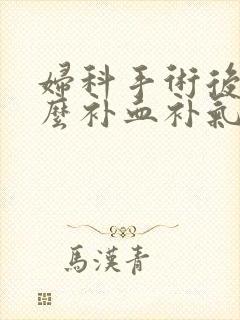 婦科手術後
麼补血补氣
馬漢青